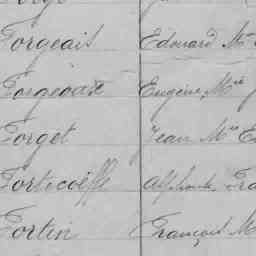 Forgeais Edouard Mie
Forgeoux Eugène, Mie
Forget Jean Mie E
Fortecoëffe Alphonse, Fra
Fortin François M